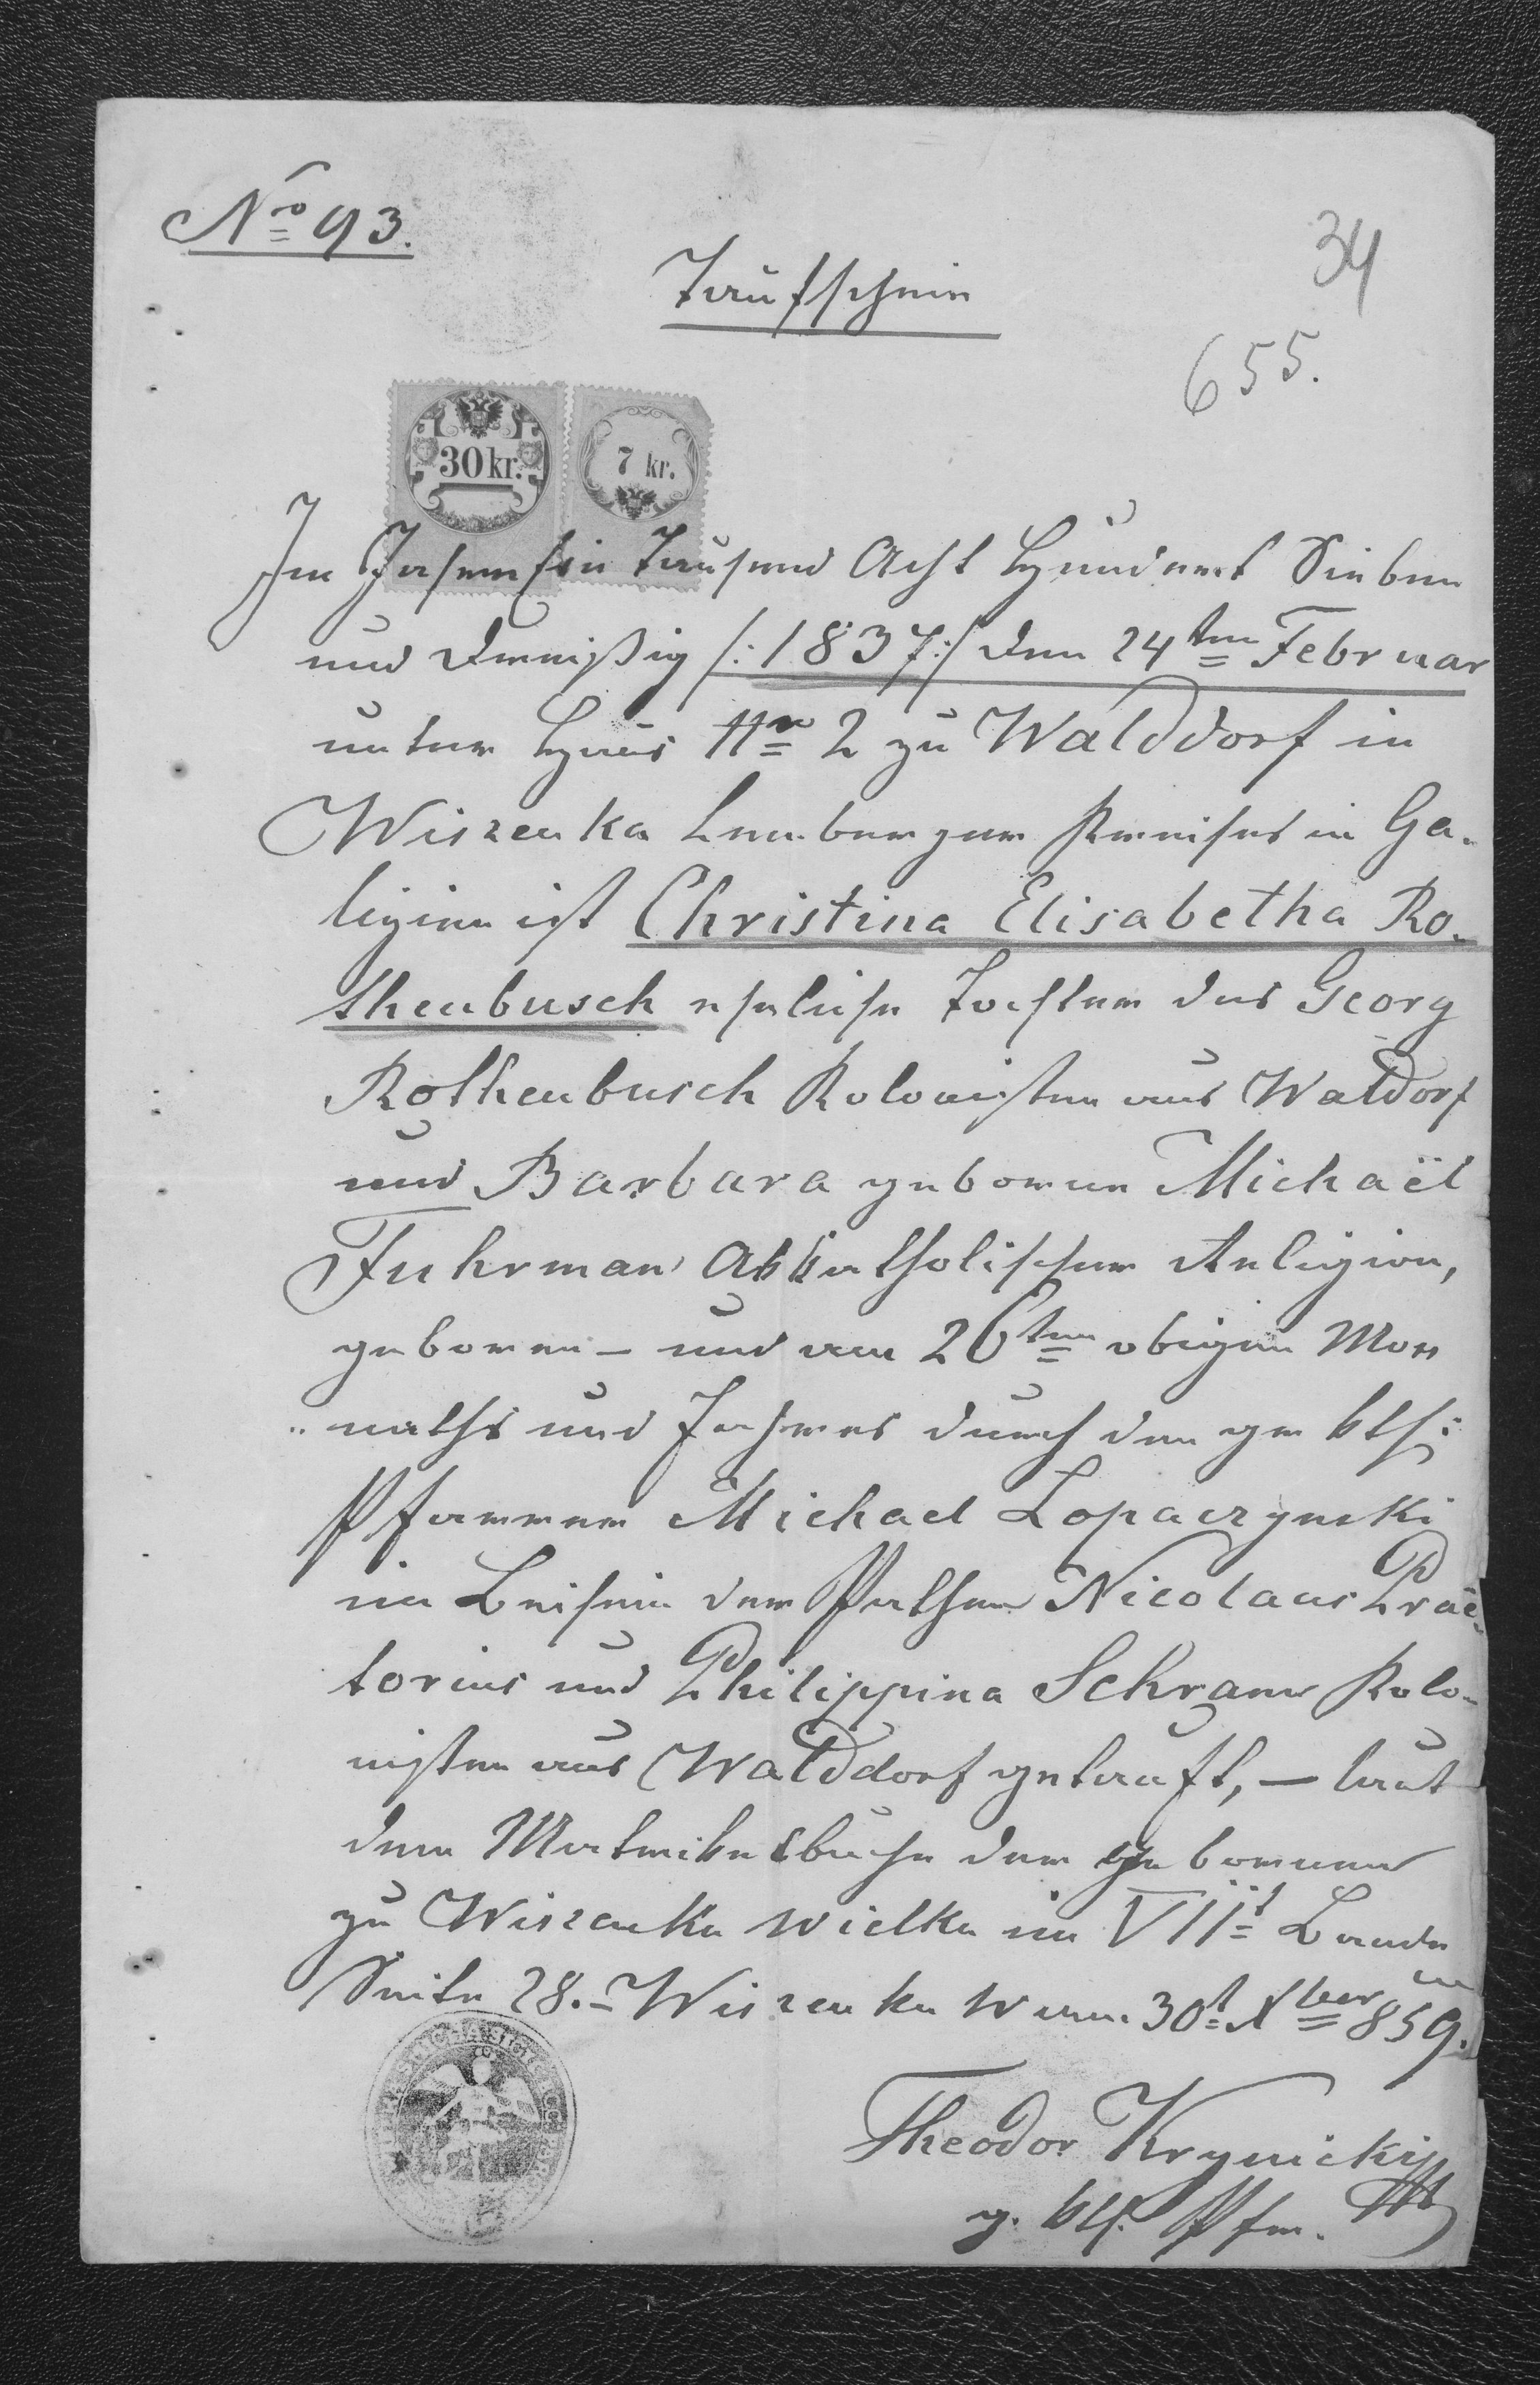 Nro 93.
34
Taufschein
655.
30 kr.
7 kr.
Im Jahre Ein Tausend Acht Hundert Sieben
und Dreißig /: 1837 :/ den 24ten Februar
unter Haus Nro 2 zu Walddorf in
Wiszenka Lemberger Kreises in Ga-
lizien ist Christina Elisabetha Ro-
thenbusch eheliche Tochter des Georg
Rothenbusch Kolonisten aus Waldorf
und Barbara geborene Michaël
Fuhrman Akkatholischer Religion,
geboren – und am 26ten obigen Mo-
naths und Jahres durch den gr kth:
Pfarrer Michael Lopaczynski
im Beisein der Pathen Nicolaus Prae-
torius und Philippina Schram Kolo-
nisten aus Walddorf getauft, – laut
dem Matrikelsbuche der geborenen
zu Wiszenka wielka im VIIt Bande
Seite 28. – Wiszenka w am 30t Xber 859.
Theodor Krynicki
g. kth. Pfr.